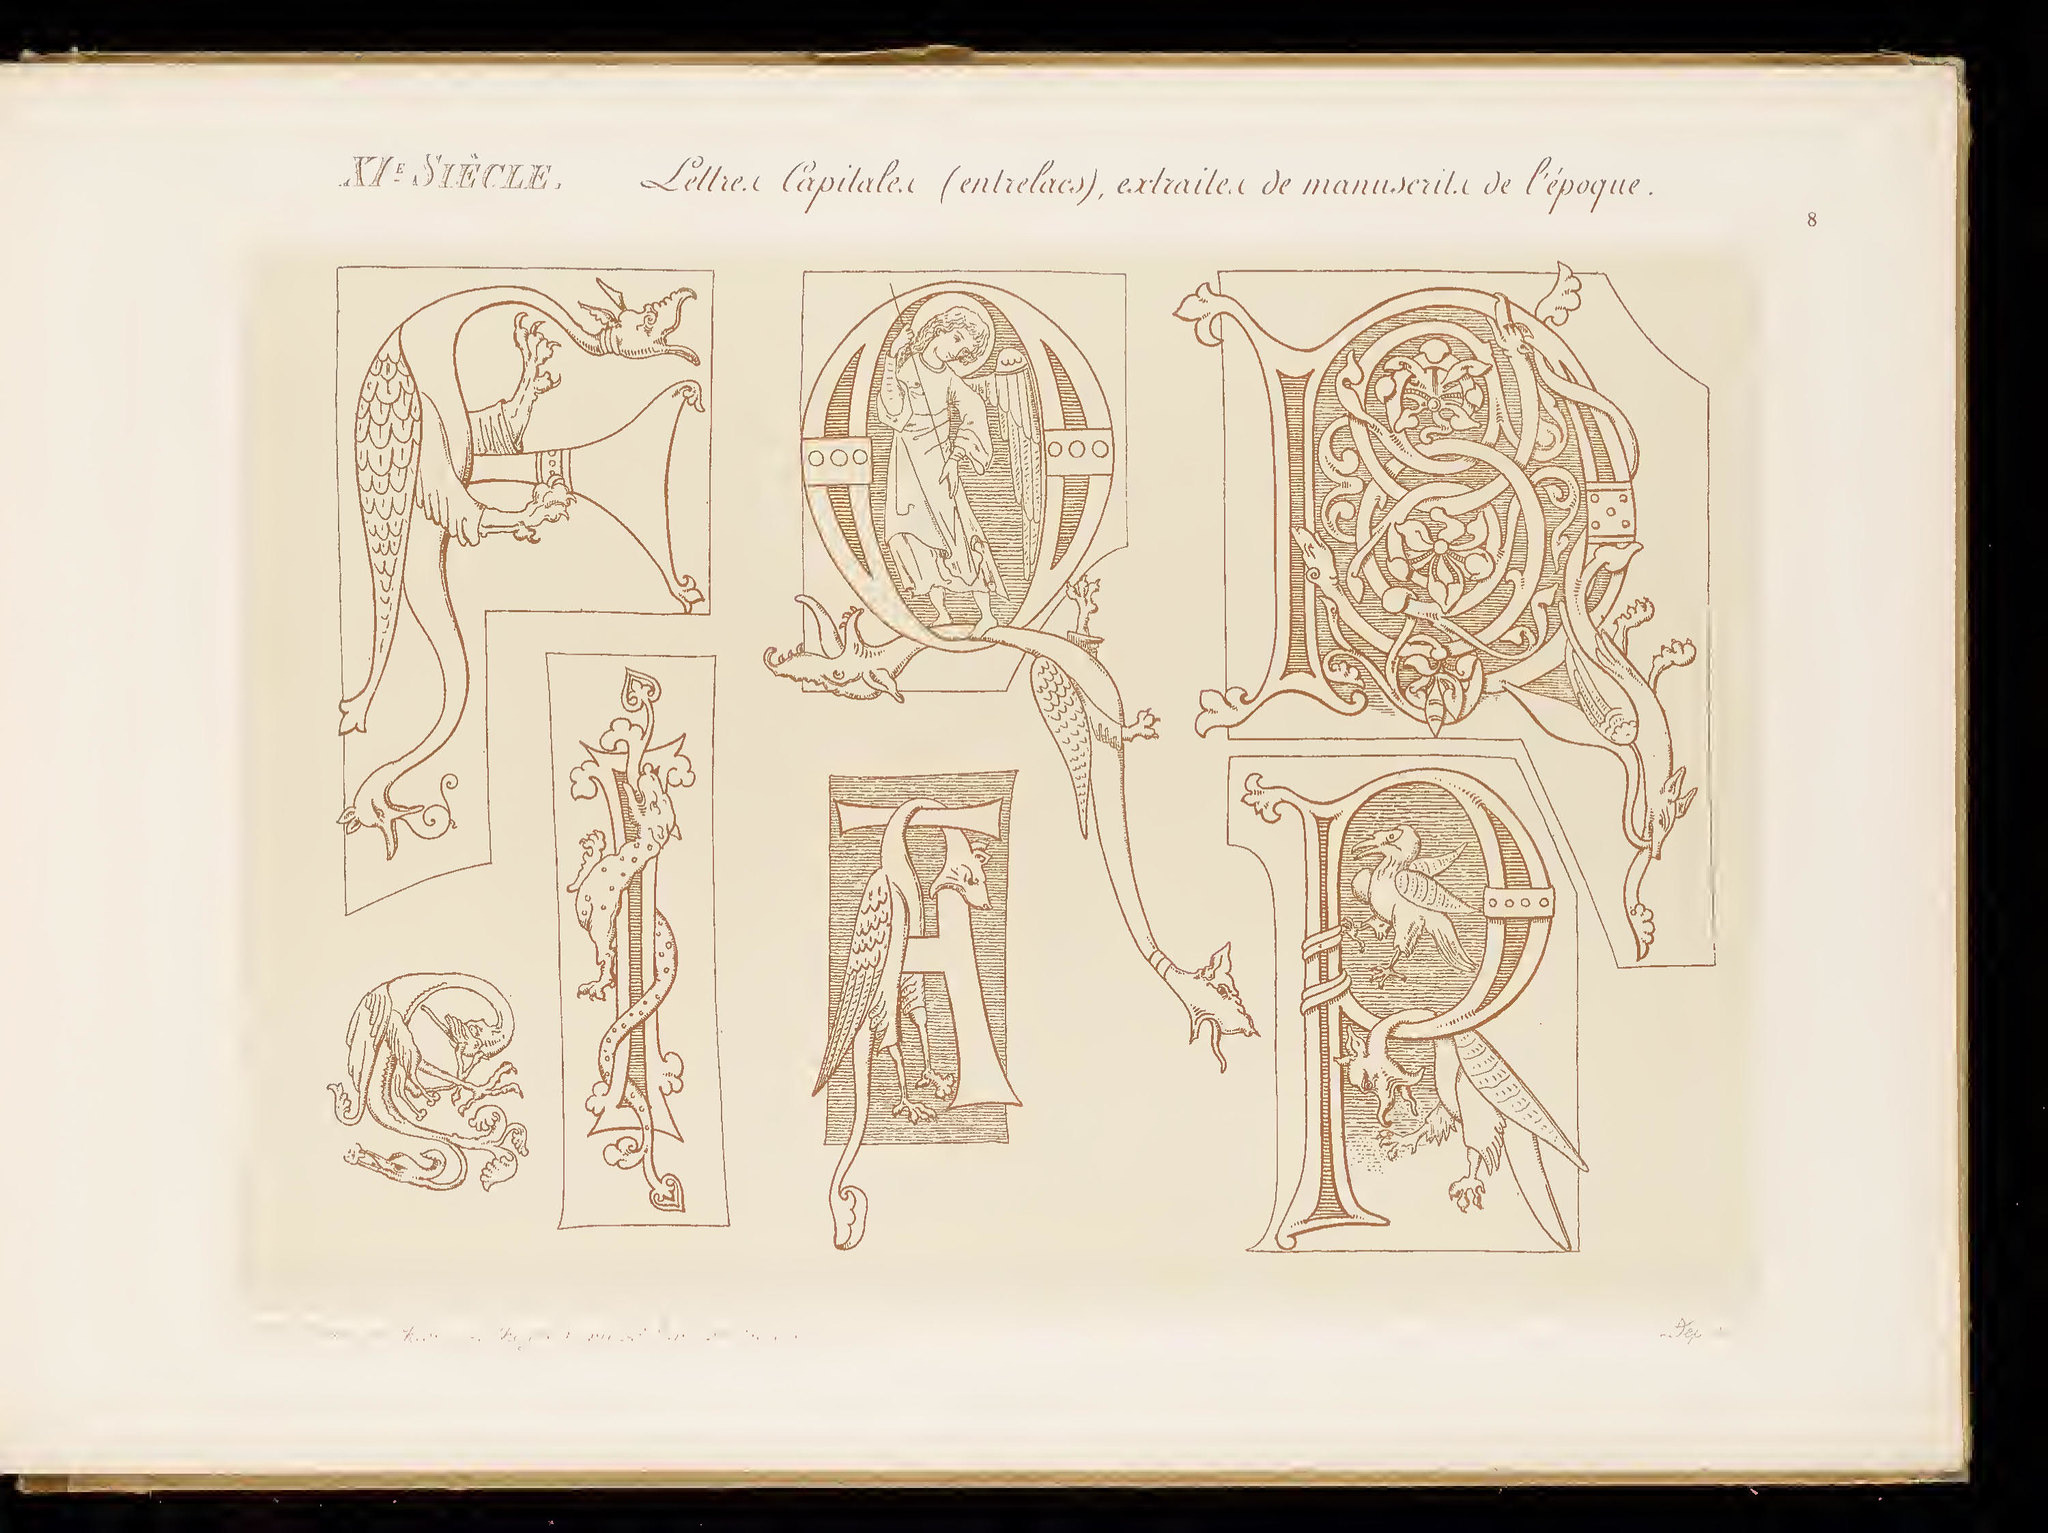 XIE SIÈCLE. Lettres Capitales (entrelacs), extraites de manuscrits de l'époque.
8
F
Q
R
I
A
R
E